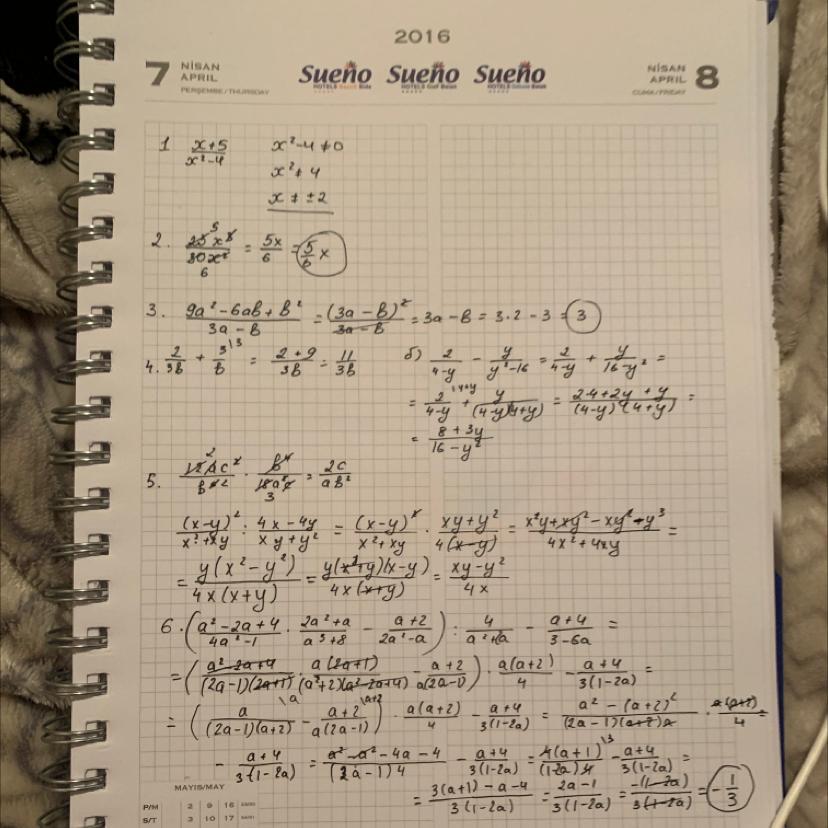 2016
7 NİSAN APRIL PERŞEMBE/THURSDAY
Sueño HOTELS Beach Side Sueño HOTELS Golf Belek Sueño HOTELS Deluxe Belek
NİSAN APRIL CUMA/FRIDAY 8
1 (x+5)/(x²-4) x²-4≠0
x²≠4
x≠±2
2. 25x³/30x² = 5x/6 = 5/6 x
3. (9a²-6ab+b²)/(3a-b) = (3a-b)²/(3a-b) = 3a-b = 3·2-3 = 3
4. 2/3b + 3/b = (2+9)/3b = 11/3b б) 2/(4-y) - y/(y²-16) = 2/(4-y) + y/(16-y²) =
= 2/(4-y) + y/((4-y)(4+y)) = (2·4+2y+y)/((4-y)(4+y)) =
= (8+3y)/(16-y²)
(x-y)²/(x²+xy) : (4x-4y)/(xy+y²) = (x-y)²/(x²+xy) · (xy+y²)/(4(x-y)) = (x²y+xy²-xy²-y³)/(4x²+4xy) =
= y(x²-y²)/(4x(x+y)) = y(x+y)(x-y)/(4x(x+y)) = (xy-y²)/4x
6. ((a²-2a+4)/(4a²-1) · (2a²+a)/(a³+8) - (a+2)/(2a²-a)) : 4/(a²+2a) - (a+4)/(3-6a) =
= ((a²-2a+4)/((2a-1)(2a+1)) · a(2a+1)/((a+2)(a²-2a+4)) - (a+2)/(a(2a-1))) · a(a+2)/4 - (a+4)/(3(1-2a)) =
= (a/((2a-1)(a+2)) - (a+2)/(a(2a-1))) · a(a+2)/4 - (a+4)/(3(1-2a)) = (a²-(a+2)²)/((2a-1)(a+2)a) · a(a+2)/4 -
- (a+4)/(3(1-2a)) = (a²-a²-4a-4)/((2a-1)4) - (a+4)/(3(1-2a)) = 4(a+1)/((1-2a)4) - (a+4)/(3(1-2a)) =
= (3(a+1)-a-4)/(3(1-2a)) = (2a-1)/(3(1-2a)) = -(1-2a)/(3(1-2a)) = -1/3
MAYIS/MAY
P/M 2 9 16
S/T 3 10 17